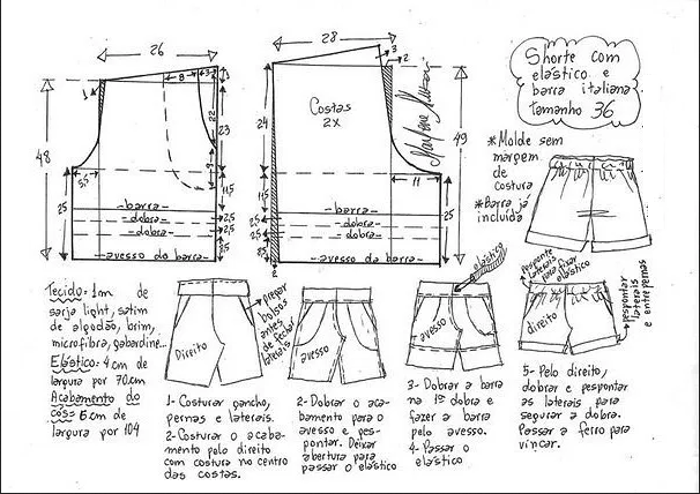 Shorte com
elástico e
barra italiana
tamanho 36
*Molde sem
margem
de
costura
*Barra já
incluída
26
8
3
3
1
22
23
9
3
48
5,5
11,5
25
-barra-
-dobra-
-dobra-
2,5
2,5
2,5
-avesso da barra-
28
3
2
Costas
2x
24
49
11
11,5
25
-barra-
-dobra-
-dobra-
2,5
2,5
25
-avesso da barra-
2
Tecido=1m de
sarja light, satim
de algodão, brim,
microfibra, gabardine...
Elástico: 4 cm de
largura por 70cm
Acabamento do
cós= 6 cm de
largura por 104
Direito
Prepar
bolsos
antes
de fechar
laterais
1- Costurar gancho,
pernas e laterais.
2- Costurar o acaba-
mento pelo direito
com costura no centro
das costas.
avesso
2- Dobrar o aca-
bamento para o
avesso e pes-
pontar. Deixar
abertura para
passar o elástico
elástico
avesso
3- Dobrar a barra
na 1ª dobra e
fazer a barra
pelo avesso.
4- Passar o
elástico
Pesponte
laterais
para fixar
elástico
direito
pespontar
laterais
e entrepernas
5- Pelo direito,
dobrar e pespontar
as laterais para
segurar a dobra.
Passar a ferro para
vincar.